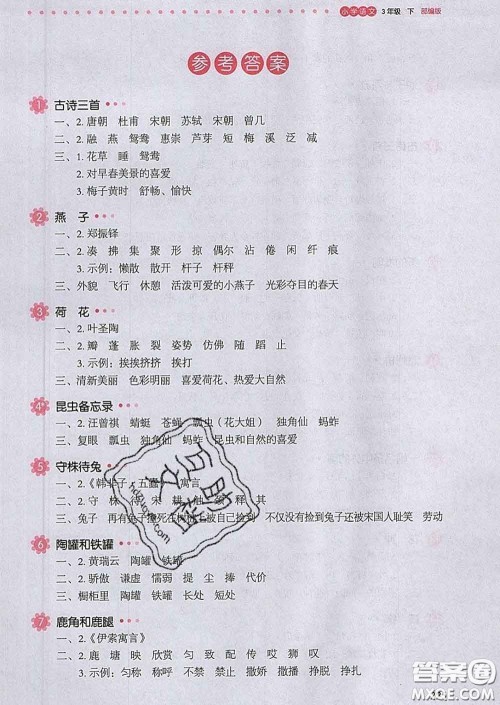 小学语文 3年级 下 部编版
参考答案
1 古诗三首
一、2. 唐朝 杜甫 宋朝 苏轼 宋朝 曾几
二、2. 融 燕 鸳鸯 惠崇 芦芽 短 梅 溪 泛 减
三、1. 花草 睡 鸳鸯
2. 对早春美景的喜爱
3. 梅子黄时 舒畅、愉快
2 燕 子
一、2. 郑振铎
二、2. 凑 拂 集 聚 形 掠 偶尔 沾 倦 闲 纤 痕
3. 示例：懒散 散开 杆子 杆秤
三、外貌 飞行 休憩 活泼可爱的小燕子 光彩夺目的春天
3 荷 花
一、2. 叶圣陶
二、2. 瓣 蓬 胀 裂 姿势 仿佛 随 蹈 止
3. 示例：挨挨挤挤 挨打
三、清新美丽 色彩明丽 喜爱荷花、热爱大自然
4 昆虫备忘录
一、2. 汪曾祺 蜻蜓 苍蝇 瓢虫（花大姐） 独角仙 蚂蚱
三、复眼 瓢虫 独角仙 蚂蚱 昆虫和自然的喜爱
5 守株待兔
一、2.《韩非子·五蠹》 寓言
二、2. 守 株 待 宋 耕 触 颈 释
三、兔子 再有兔子撞死在树桩上被自己捡到 不仅没有捡到兔子还被宋国人耻笑 劳动
6 陶罐和铁罐
一、2. 黄瑞云 陶罐 铁罐
二、2. 骄傲 谦虚 懦弱 提 尘 捧 代价
三、橱柜里 陶罐 铁罐 长处 短处
7 鹿角和鹿腿
一、2.《伊索寓言》
二、2. 鹿 塘 映 欣赏 匀 致 配 传 哎 狮 叹
3. 示例：匀称 称呼 不禁 禁止 撒娇 撒播 挣脱 挣扎
答案圈
MXQE.COM